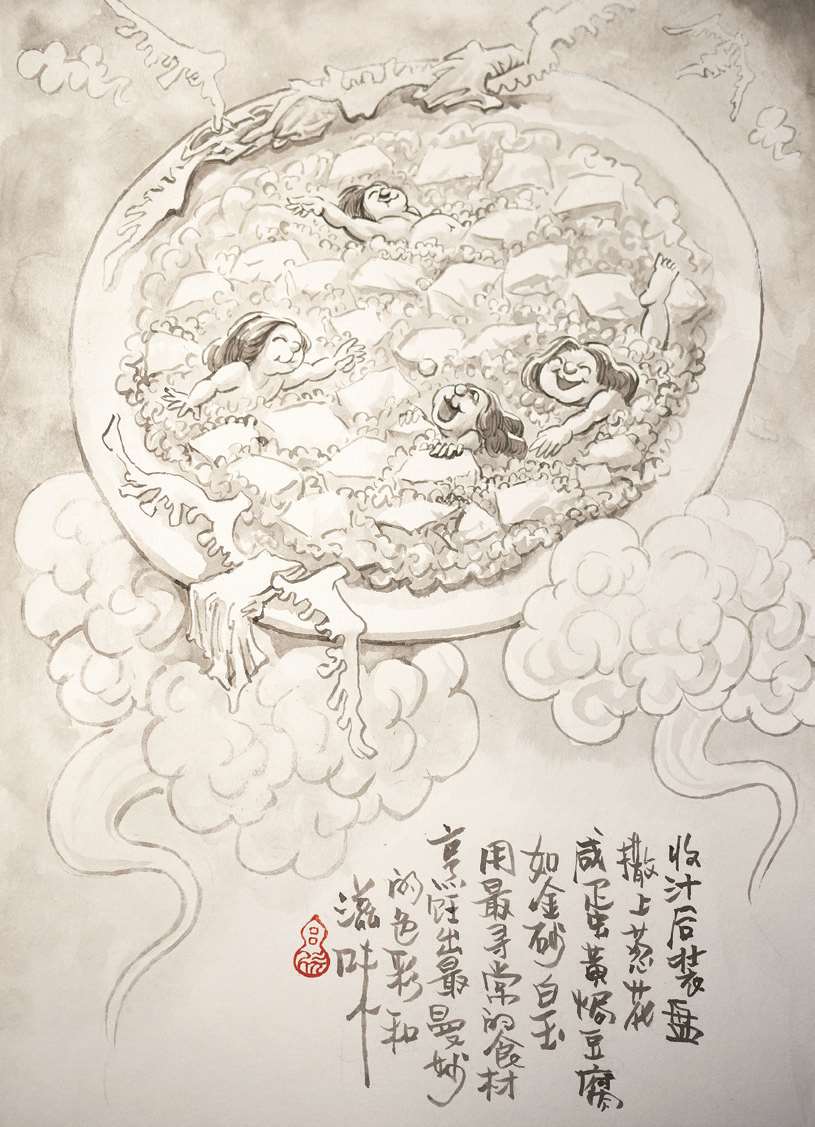 收汁后装盘
撒上葱花
咸蛋黄焗豆腐
如金砂白玉
用最寻常的食材
烹饪出最曼妙
的色彩和
滋味